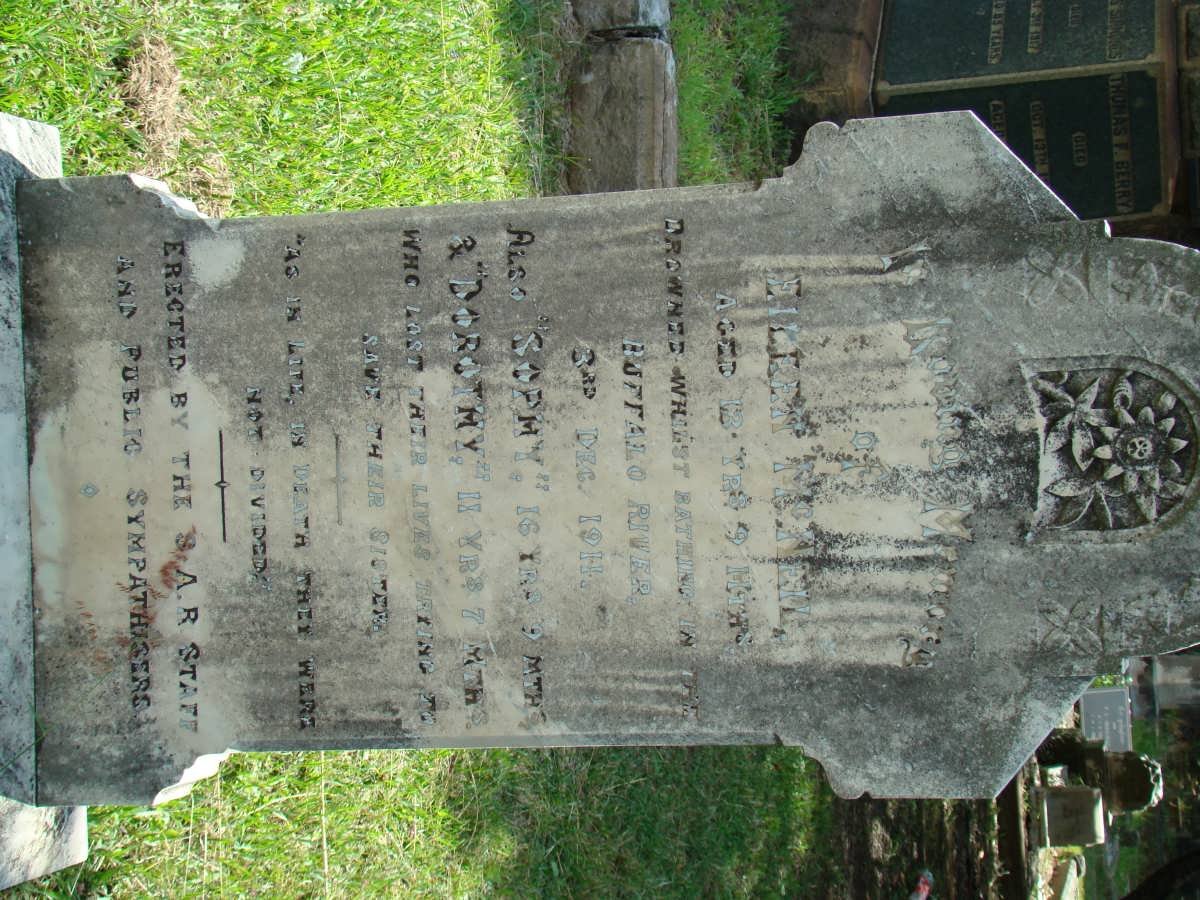 In Loving Memory
OF
EILEEN
AGED 13 YRS 9 MTHS,
DROWNED WHILST BATHING IN THE
BUFFALO RIVER,
3RD DEC. 1911.
ALSO "SOPHY," 16 YRS 9 MTHS
& "DOROTHY," 11 YRS 7 MTHS.
WHO LOST THEIR LIVES TRYING TO
SAVE THEIR SISTER.
"AS IN LIFE, IS DEATH THEY WERE
NOT DIVIDED."
ERECTED BY THE S.A.R STAFF
AND PUBLIC SYMPATHISERS.
THOMAS F. BERRY
DIED
OCT 13TH